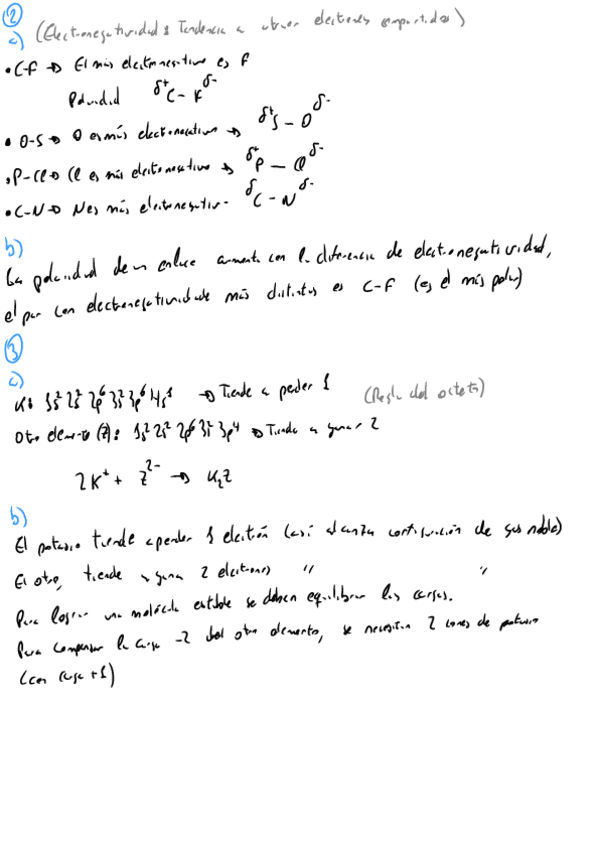 ②
a) (Electronegatividad: Tendencia a atraer electrones compartidos)
• C-F → El más electronegativo es F
Polaridad δ+C - Fδ-
• O-S → O es más electronegativo → δ+S - Oδ-
• P-Cl → Cl es más electronegativo → δ+P - Clδ-
• C-N → N es más electronegativo - δC - Nδ-
b)
La polaridad de un enlace aumenta con la diferencia de electronegatividad,
el par con electronegatividade más distintas es C-F (es el más polar)
③
a)
K: 1s² 2s² 2p⁶ 3s² 3p⁶ 4s¹ → Tiende a perder 1 (Regla del octeto)
Otro elemento (Z): 1s² 2s² 2p⁶ 3s² 3p⁴ → Tiende a ganar 2
2K⁺ + Z²⁻ → K₂Z
b)
El potasio tiende a perder 1 electrón (así alcanza configuración de gas noble)
El otro, tiende a ganar 2 electrones " "
Para lograr una molécula estable se deben equilibrar las cargas.
Para compensar la carga -2 del otro elemento, se necesitan 2 iones de potasio
(con carga +1)